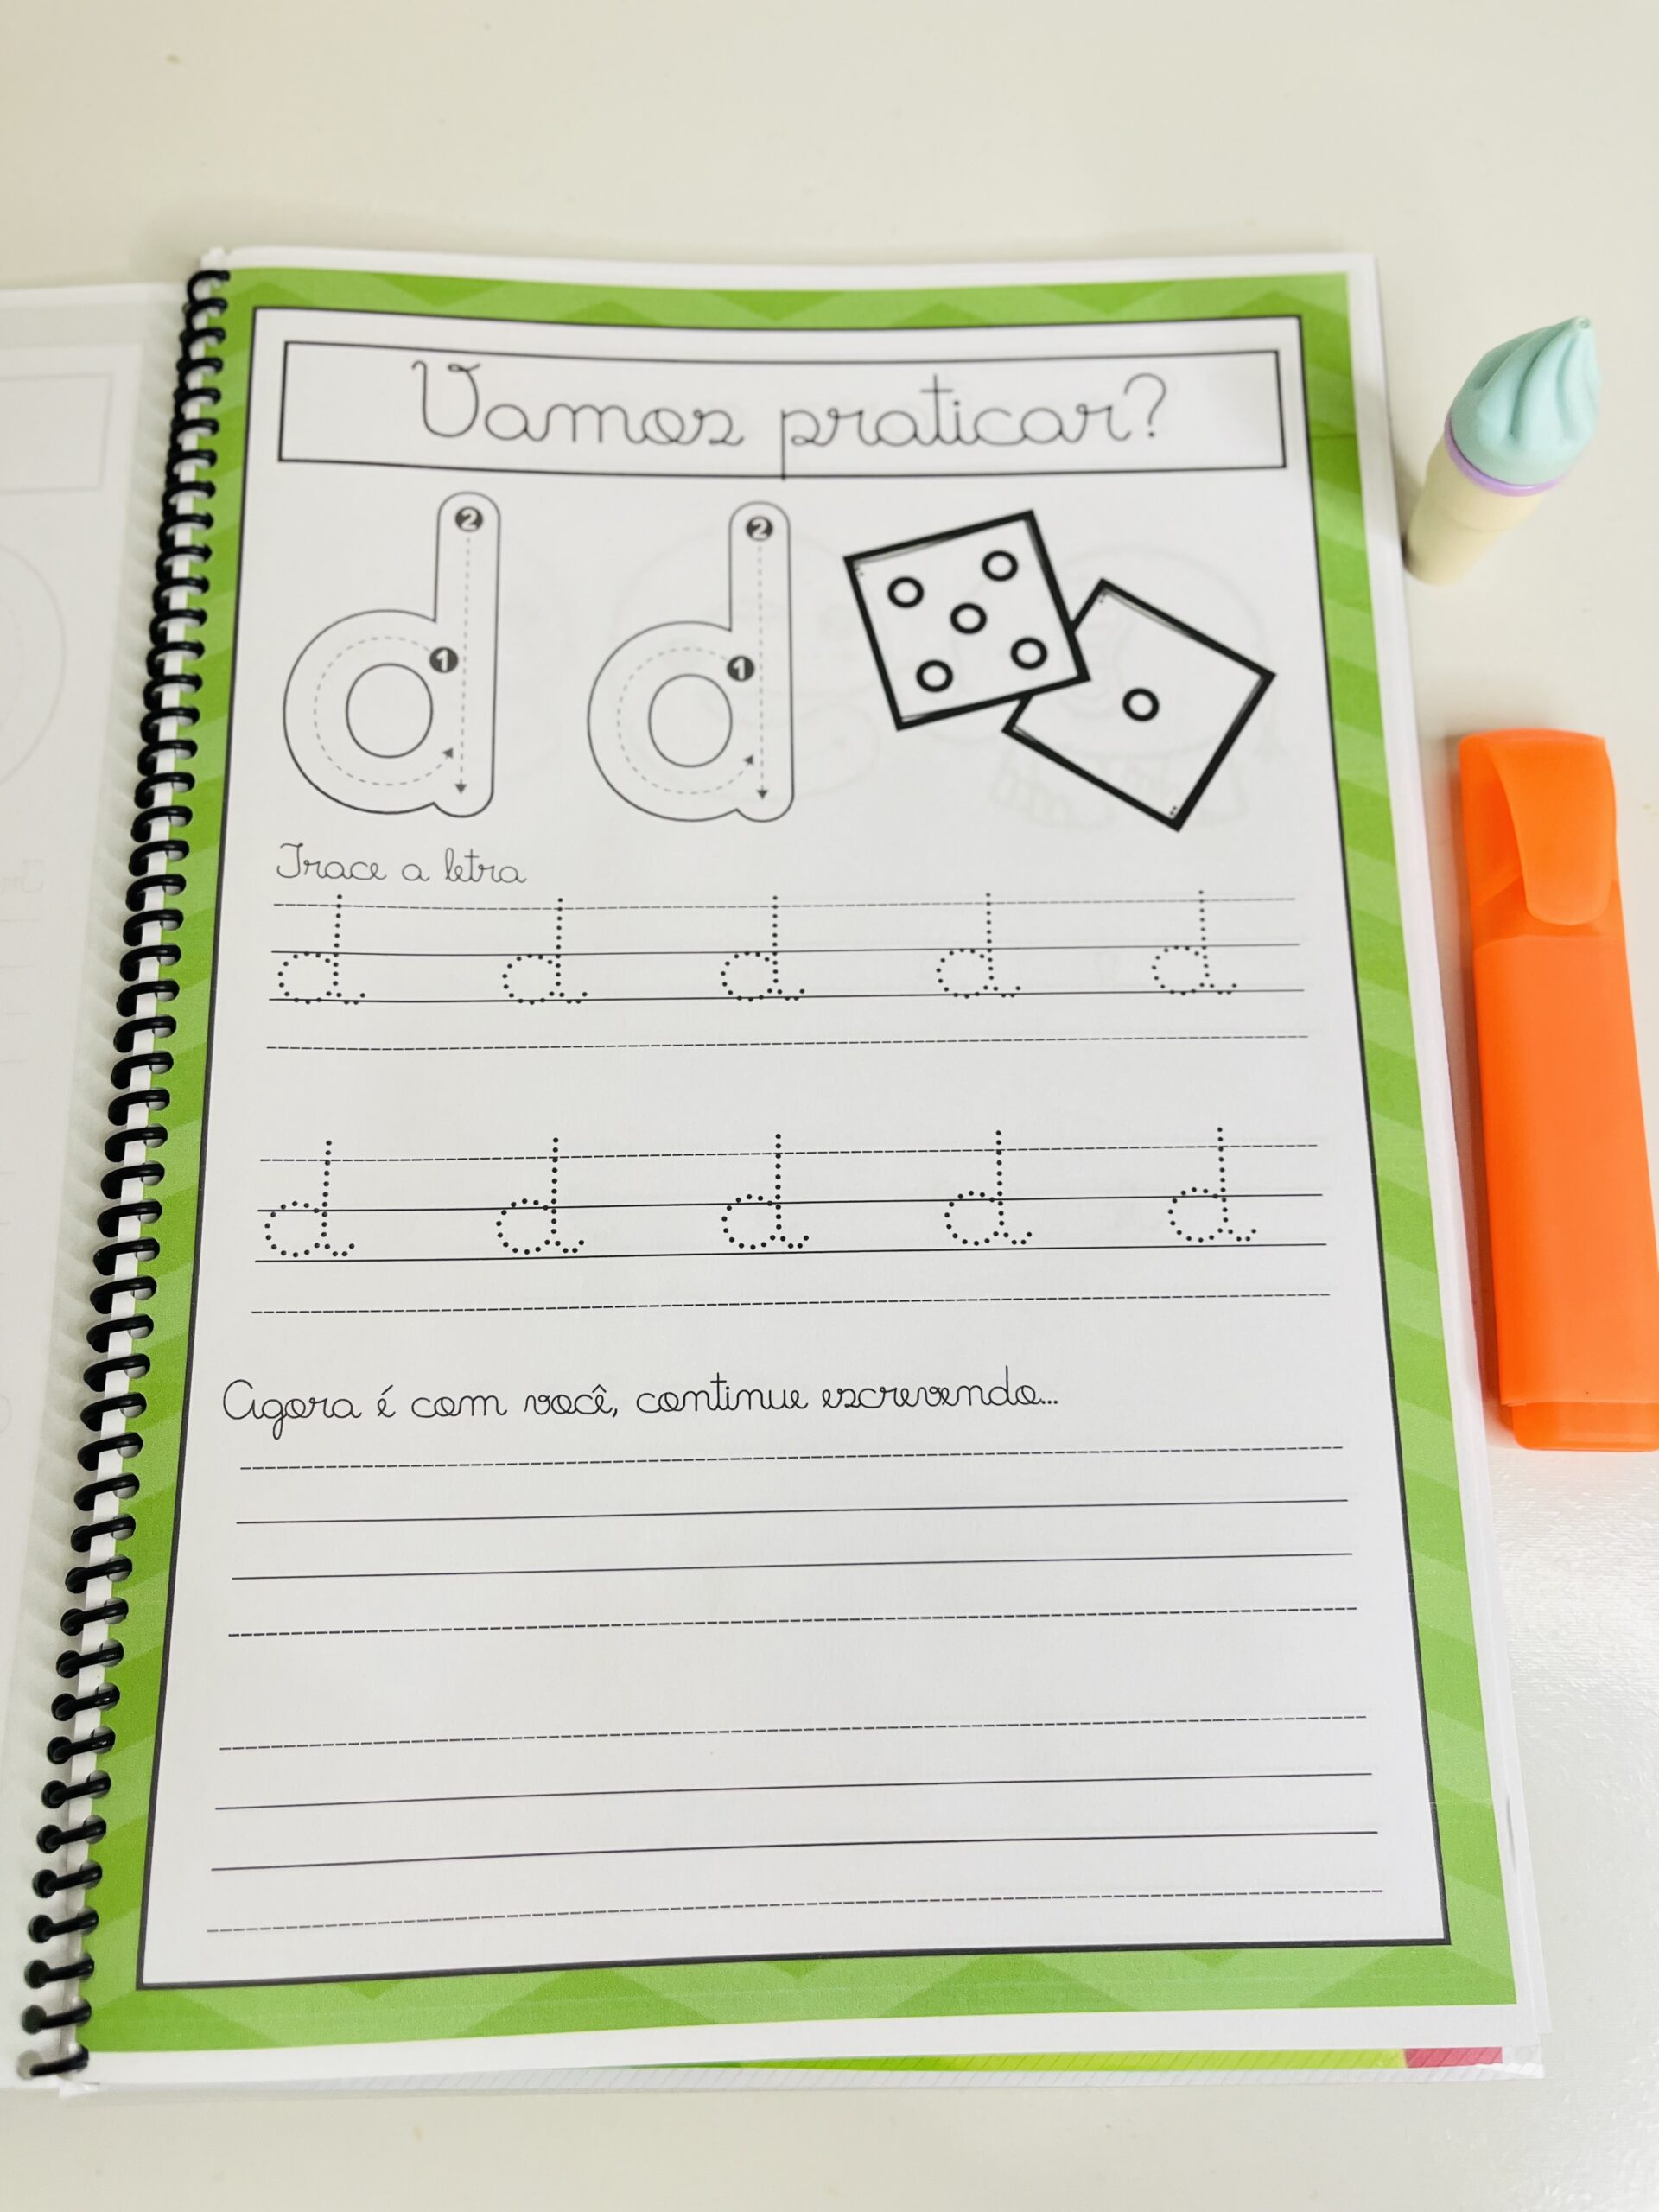 Vamos praticar?
2 2
1 1
Trace a letra
d d d d d
d d d d d
Agora é com você, continue escrevendo...